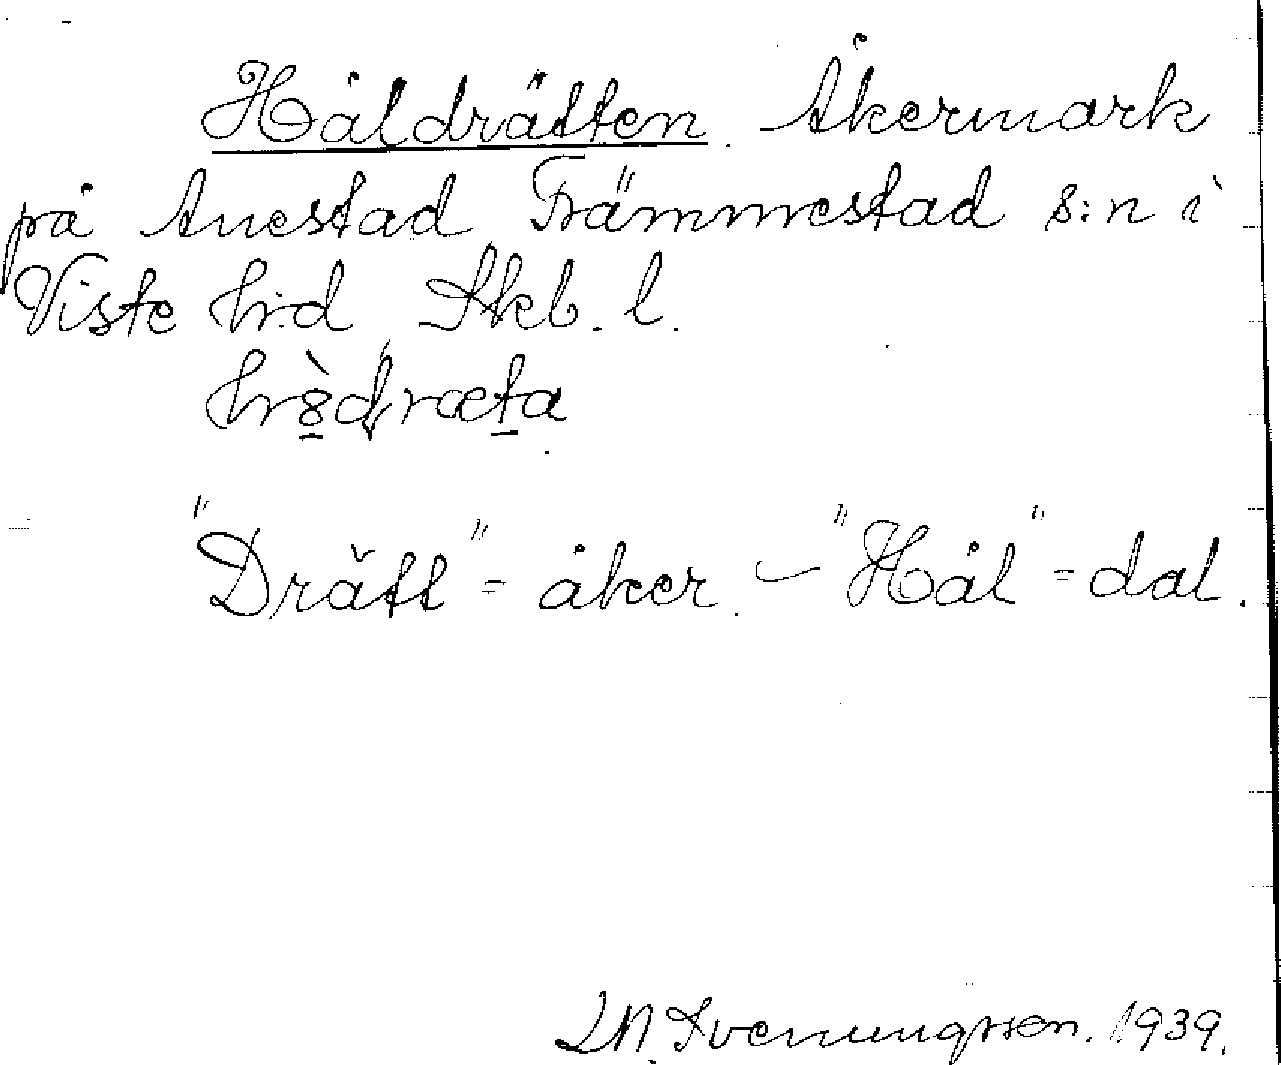 Håldrätten. Åkermark
på Anestad Främmestad s:n i
Viste h:d Skb. l.
"Drätt" = åker. – "Hål" = dal.
L.N. Svenungsson. 1939.